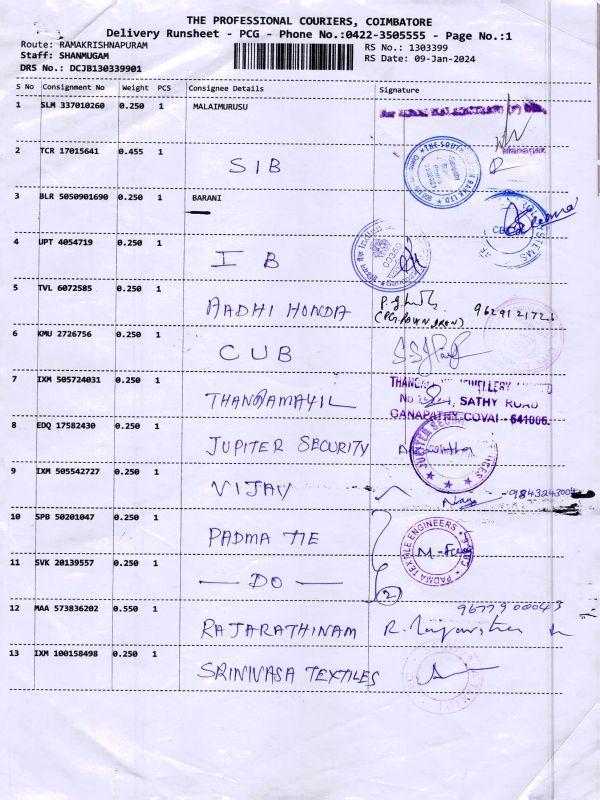 THE PROFESSIONAL COURIERS, COIMBATORE
Delivery Runsheet - PCG - Phone No.:0422-3505555 - Page No.:1
Route: RAMAKRISHNAPURAM
RS No.: 1303399
Staff: SHANMUGAM
RS Date: 09-Jan-2024
DRS No.: DCJB130339901
S No Consignment No Weight PCS Consignee Details Signature
1 SLM 337010260 0.250 1 MALAIMURUSU
Manager
2 TCR 17015641 0.455 1 SIB
3 BLR 5050901690 0.250 1 BARANI
4 UPT 4054719 0.250 1 I B
5 TVL 6072585 0.250 1 AADHI HONDA 9629121726
6 KMU 2726756 0.250 1 CUB
7 IXM 505724031 0.250 1 THANGAMAYIL
SATHY ROAD
GANAPATHY, COVAI - 641006.
8 EDQ 17582430 0.250 1 JUPITER SECURITY
JUPITER
9 IXM 505542727 0.250 1 VIJAY 9843243004
10 SPB 50201047 0.250 1 PADMA TIE
PADMA TEXTILE ENGINEERS
11 SVK 20139557 0.250 1 — DO — 2
12 MAA 573836202 0.550 1 RAJARATHINAM 9677900043
13 IXM 100158498 0.250 1 SRINIVASA TEXTILES